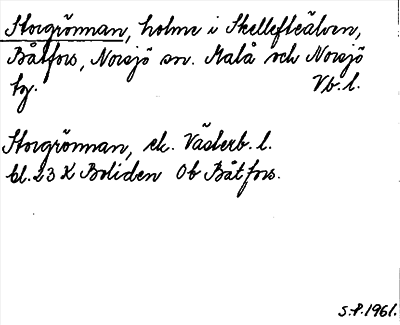 Storgrönnan, holme i Skellefteälven,
Båtfors, Norsjö sn. Malå och Norsjö
tg. Vb. l.
Storgrönnan, ek. Västerb. l.
bl. 23 K Boliden 0b Båtfors.
S.P. 1961.